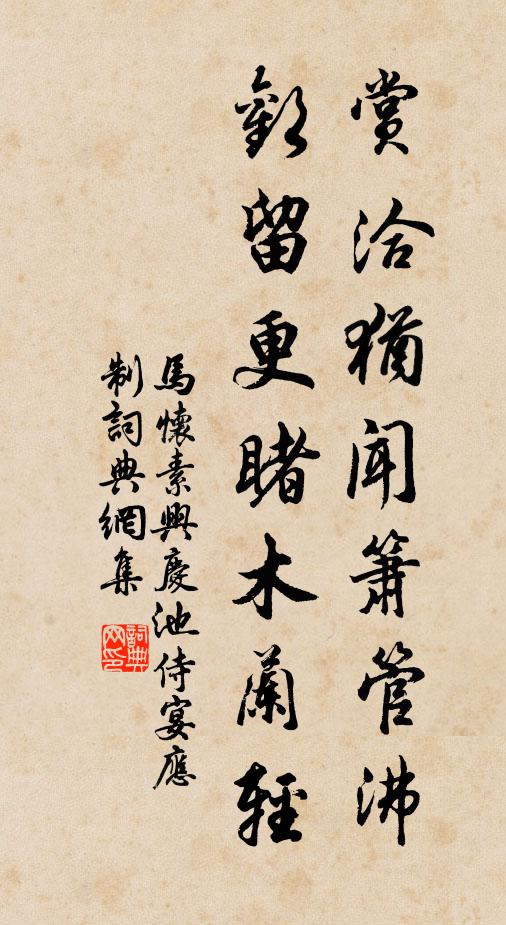 賞洽猶聞簫管沸
歡留更睹木蘭輕
馬懷素興慶池侍宴應
制詞典網集
詞典
网印